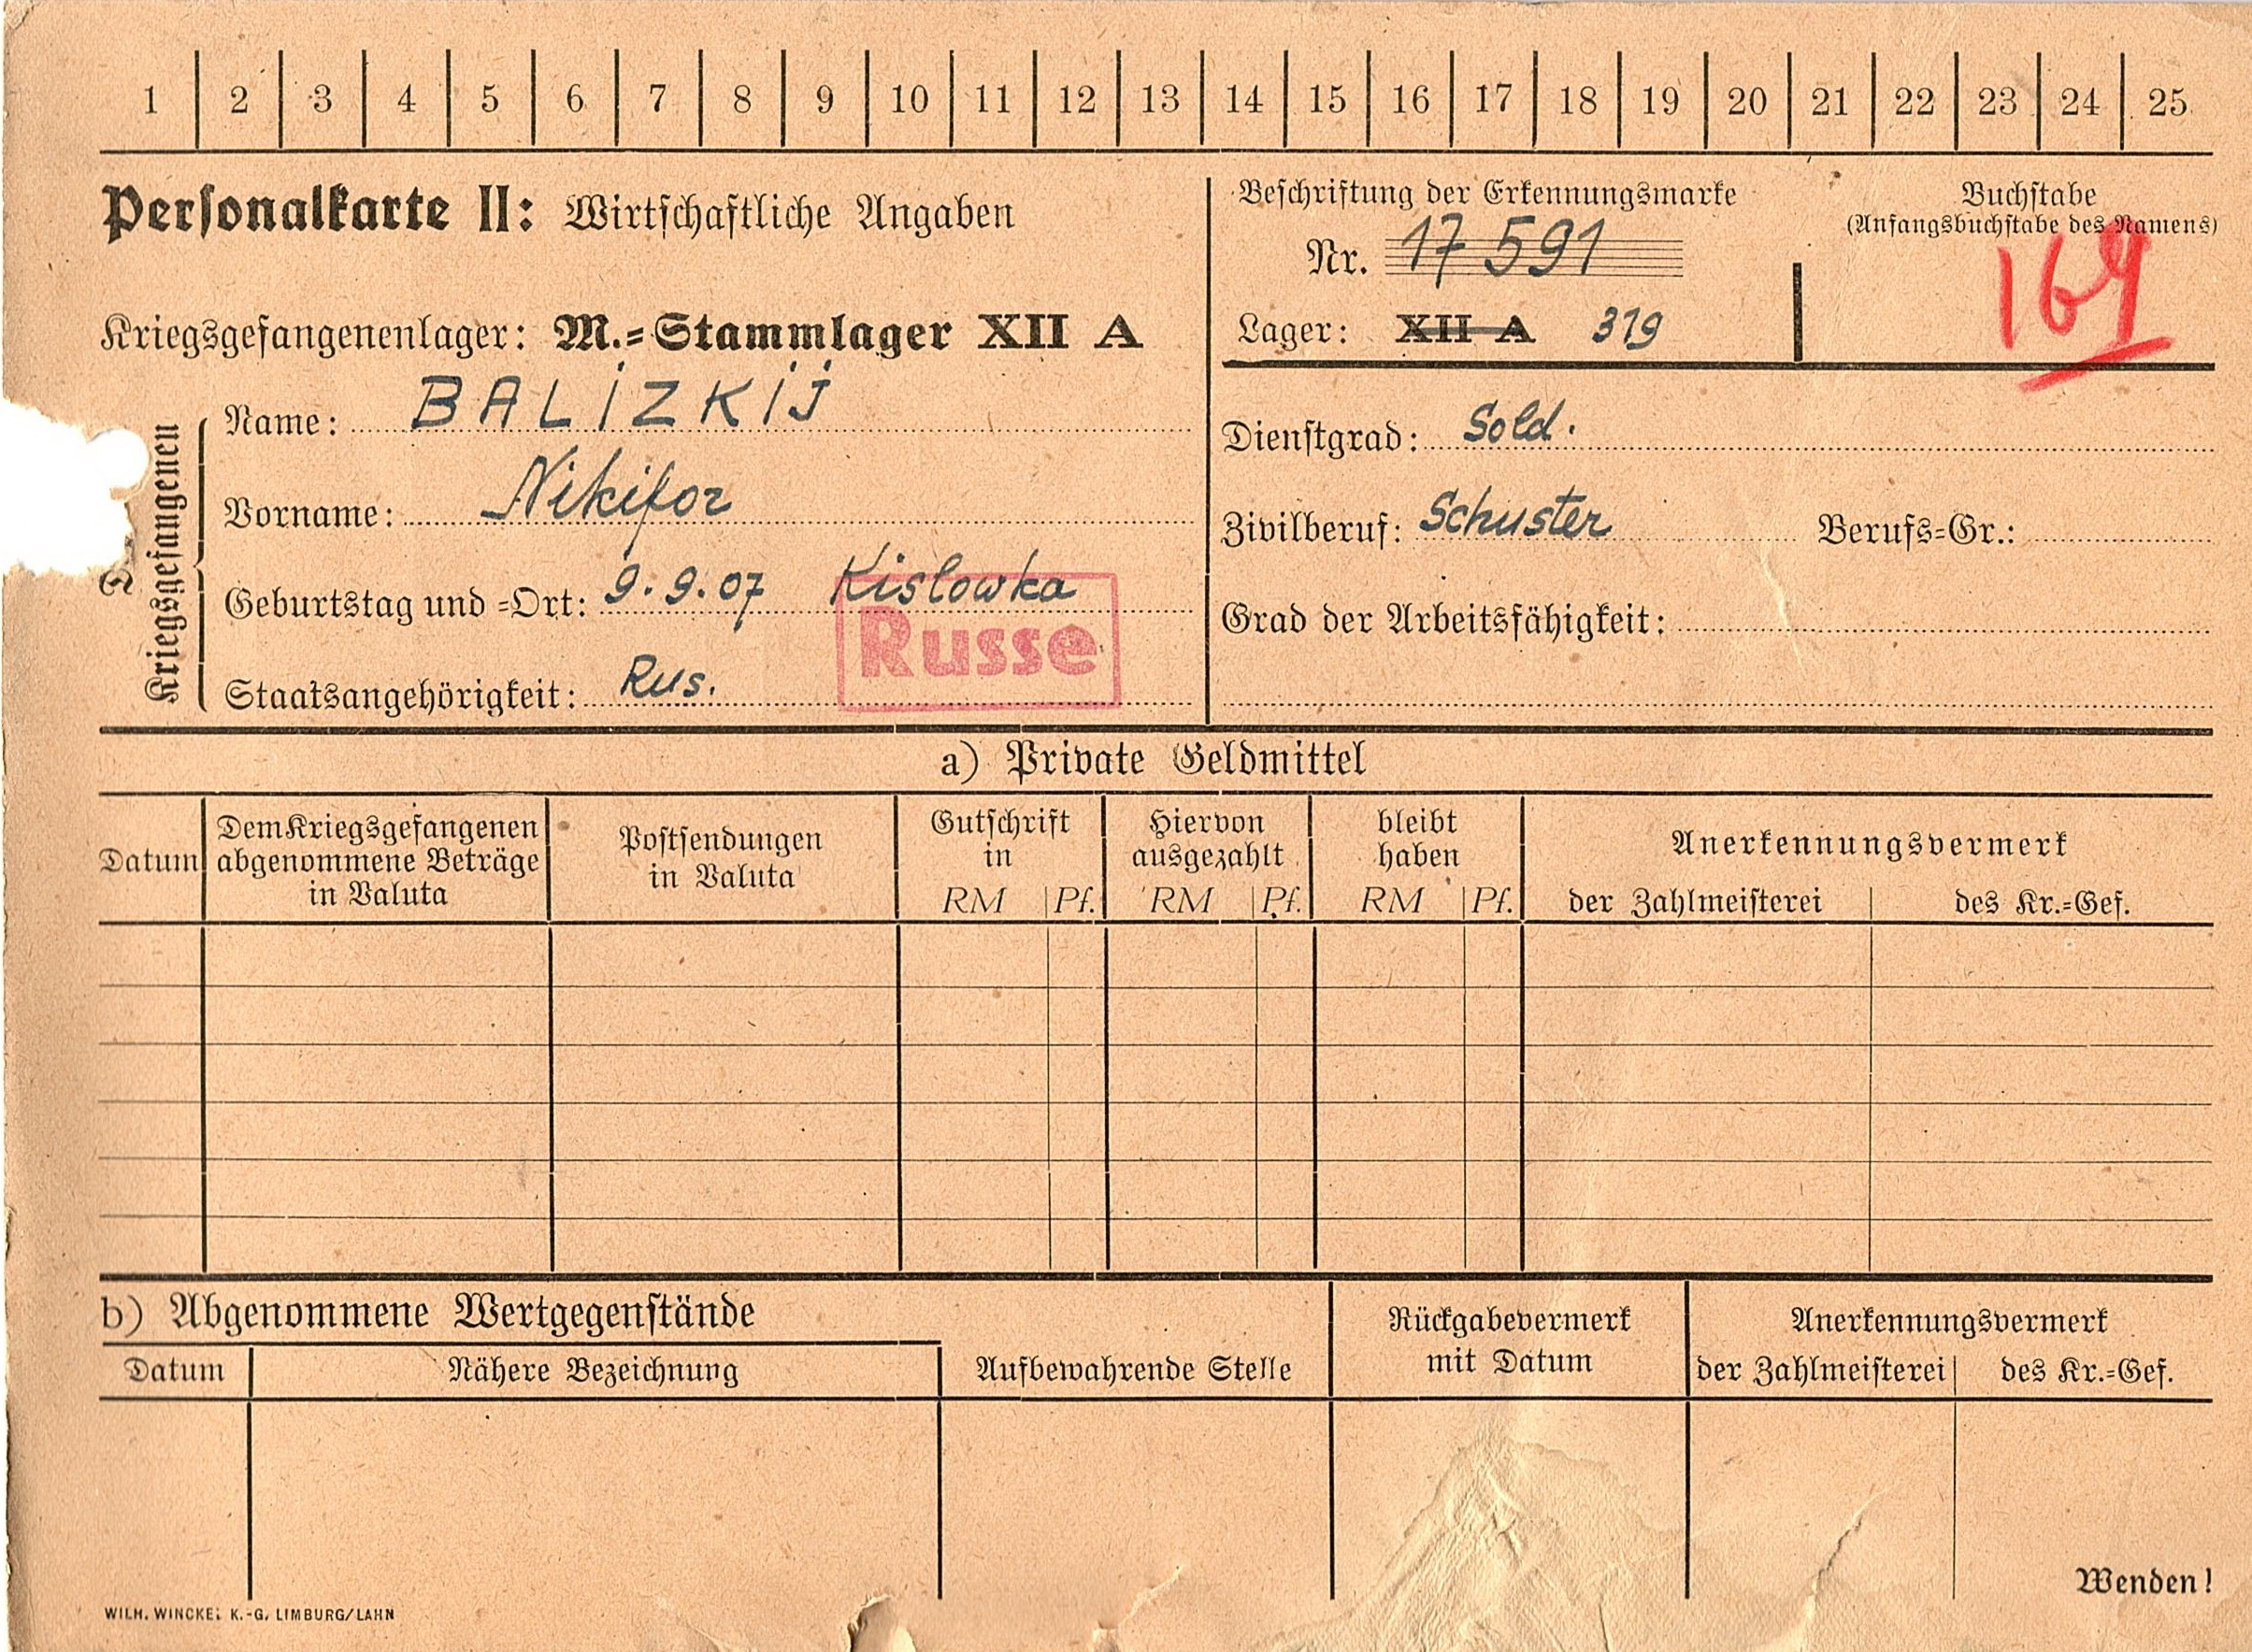 1 2 3 4 5 6 7 8 9 10 11 12 13 14 15 16 17 18 19 20 21 22 23 24 25
Personalkarte II: Wirtschaftliche Angaben
Kriegsgefangenenlager: M.-Stammlager XII A
Beschriftung der Erkennungsmarke
Nr. 17 591
Lager: XII A 319
Buchstabe
(Anfangsbuchstabe des Namens)
169
Kriegsgefangenen
Name: BALIZKIJ
Vorname: Nikifor
Geburtstag und -Ort: 9.9.07 Kislowka
Russe
Staatsangehörigkeit: Rus.
Dienstgrad: Sold.
Zivilberuf: Schuster Berufs-Gr.:
Grad der Arbeitsfähigkeit:
a) Private Geldmittel
Datum
Dem Kriegsgefangenen
abgenommene Beträge
in Valuta
Postsendungen
in Valuta
Gutschrift
in
RM Pf.
Hiervon
ausgezahlt
RM Pf.
bleibt
haben
RM Pf.
Anerkennungsvermerk
der Zahlmeisterei des Kr.-Gef.
b) Abgenommene Wertgegenstände
Datum Nähere Bezeichnung
Aufbewahrende Stelle
Rückgabevermerk
mit Datum
Anerkennungsvermerk
der Zahlmeisterei des Kr.-Gef.
Wenden!
WILH. WINCKEL K.-G. LIMBURG/LAHN